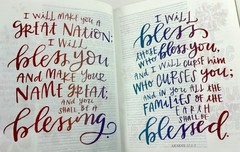 I WILL MAKE YOU A
GREAT NATION;
I WILL
bless you
AND MAKE YOUR
NAME GREAT;
AND YOU
SHALL BE A
blessing.
I WILL
bless
THOSE
WHO bless YOU,
AND I WILL CURSE HIM
WHO CURSES YOU;
AND IN YOU ALL THE
FAMILIES OF THE
EARTH
SHALL BE
blessed.